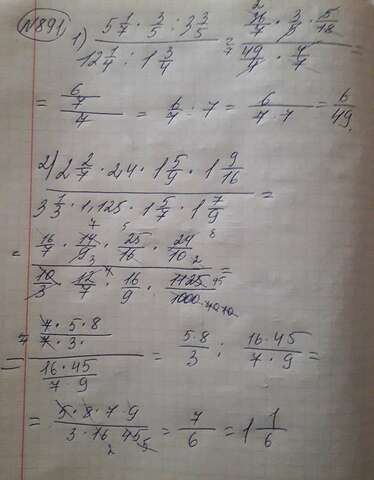 №891
1) (5 1/7 · 3/5 : 3 3/5) / (12 1/4 : 1 3/4) = (36/7 · 3/5 · 5/18) / (49/4 · 4/7) =
= (6/7) / 7 = 6/7 : 7 = 6/(7·7) = 6/49.
2) (2 2/7 · 2,4 · 1 5/9 · 1 9/16) / (3 1/3 · 1,125 · 1 5/7 · 1 7/9) =
= (16/7 · 14/9 · 25/16 · 24/10) / (10/3 · 12/7 · 16/9 · 1125/1000) =
= ((7·5·8)/(7·3)) / ((16·45)/(7·9)) = (5·8)/3 : (16·45)/(7·9) =
= (5·8·7·9)/(3·16·45) = 7/6 = 1 1/6